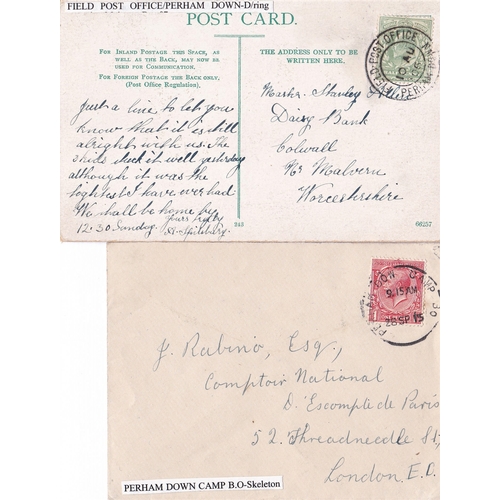 FIELD POST OFFICE/PERHAM DOWN-D/ring
POST CARD.
FOR INLAND POSTAGE THIS SPACE, AS WELL AS THE BACK, MAY NOW BE USED FOR COMMUNICATION.
FOR FOREIGN POSTAGE THE BACK ONLY, (Post Office Regulation).
THE ADDRESS ONLY TO BE WRITTEN HERE.
Just a line to let you
know that it is still
alright with us. The
stuck it well yesterday
although it was the
I have ever had
We shall be home by
12.30 Sunday. yours truly
A. Spilsbury.
Master Stanley
Daisy Bank
Colwall
Nr Malvern
Worcestershire
243
66257
FIELD POST OFFICE
DOWN CAMP
9.15AM
28 SP 15
J. Rubino, Esq.,
Comptoir National
D'Escompte de Paris
52 Threadneedle St,
London. E.C.
PERHAM DOWN CAMP B.O-Skeleton